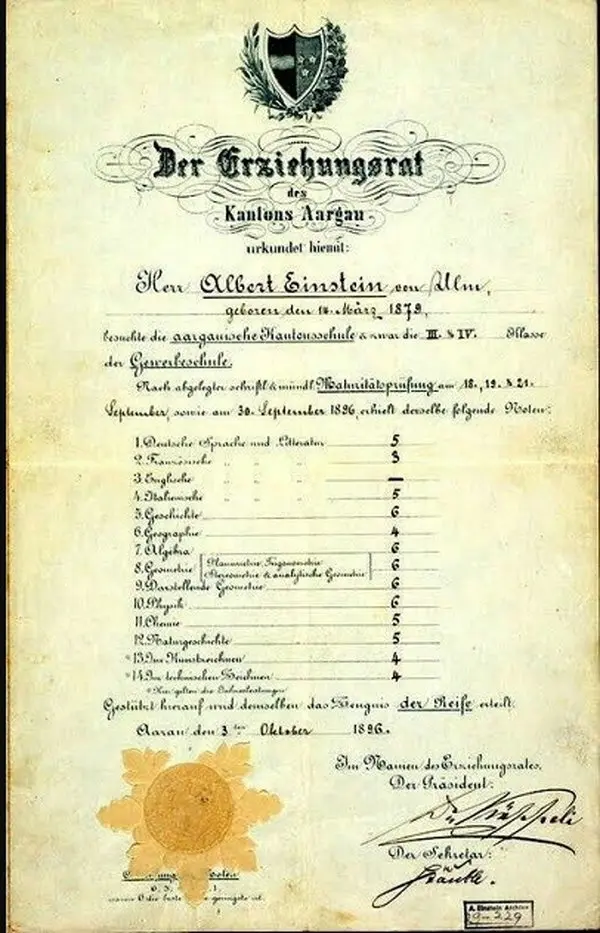 Der Erziehungsrat
des
Kantons Aargau
urkundet hiemit:
Herr Albert Einstein von Ulm,
geboren den 14. März 1879,
besuchte die aargauische Kantonsschule & zwar die III. & IV. Klasse
der Gewerbeschule.
Nach abgelegter schriftl. & mündl. Maturitätsprüfung am 18., 19. & 21.
September, sowie am 30. September 1896, erhielt derselbe folgende Noten:
1. Deutsche Sprache und Litteratur 5
2. Französische " " " 3
3. Englische " " " —
4. Italienische " " " 5
5. Geschichte 6
6. Geographie 4
7. Algebra 6
8. Geometrie [Planimetrie, Trigonometrie Stereometrie & analytische Geometrie] 6
9. Darstellende Geometrie 6
10. Physik 6
11. Chemie 5
12. Naturgeschichte 5
*13. Im Kunstzeichnen 4
*14. Im technischen Zeichnen 4
*Hier gelten die Jahresleistungen
Gestützt hierauf wird demselben das Zeugnis der Reife erteilt.
Aarau den 3ten Oktober 1896.
Im Namen des Erziehungsrates,
Der Präsident:
Der Sekretär:
6, 5, 1.
A. Einstein Archive
29-229